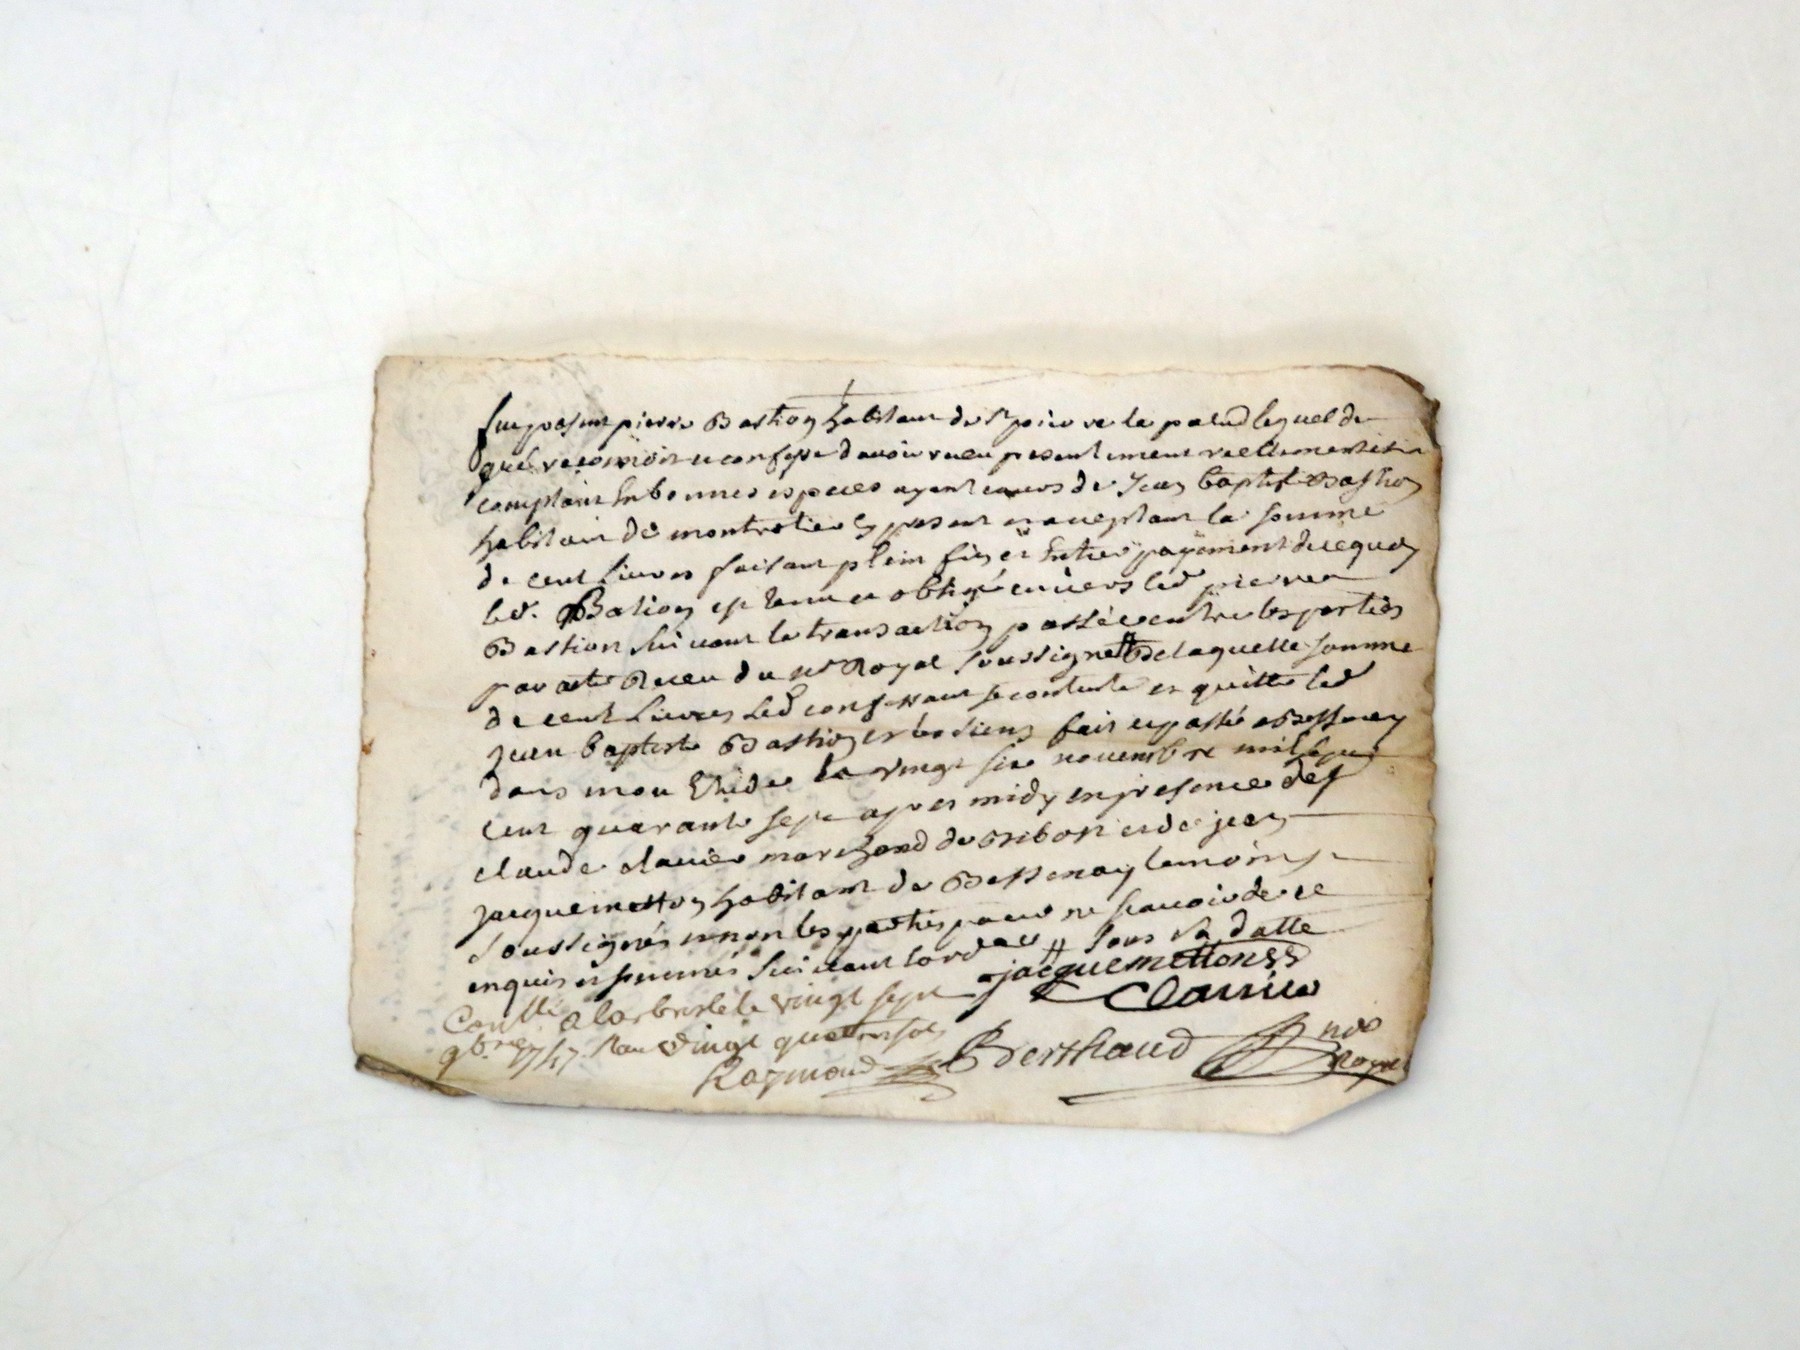 fut present pierre Bastion habitant de St pierre la palud lequel de
gré reconnoit et confesse davoir receu presentement reellement et
comptant En bonnes especes ayant cours de Jean baptiste Bastion
habitant de montrotier present et acceptant la somme
de cent Livres faisant plein fin et Entier payement de ce quoy
led. Bation est tenu et obligé envers led pierre
Bastion suivant la transaction passée entre les parties
par acte Receu du nre Royal soussigné de laquelle somme
de cent Livres led confessant se contente et quitte led
jean baptiste Bastion et les siens fait et passé a Bessenay
dans mon Etude le vingt six novembre mil sept
cent quarante sept apres midy en presence de sr
claude clavier marchand de et de jean
jacquemetton habitant de Bessenay temoins
soussignés et non les parties pour ne scavoir de ce
enquis et sommés suivant lord // sous sa datte
jacquemetton
Clavier
Con.llé a larbresle le vingt sept
9bre 1747. Reçu vingt quatre sols
Raymond
Berthaud nre
Royal